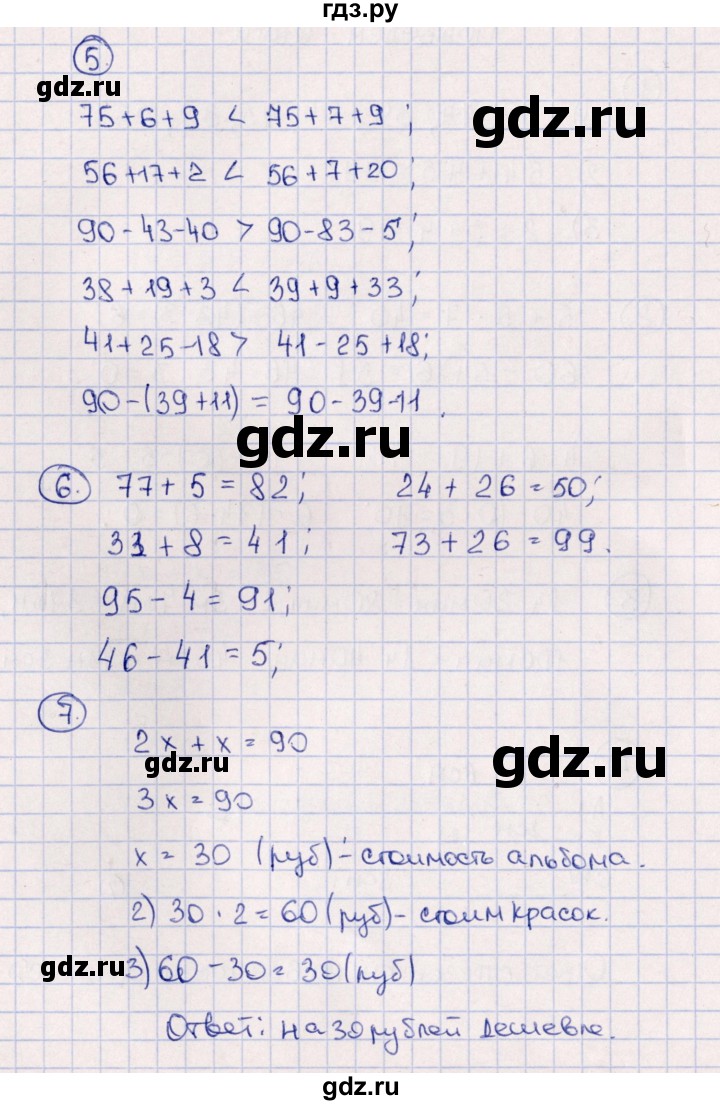 гдз.ру
5
gdz.ru
75+6+9 < 75+7+9;
gdz.ru
56+17+2 < 56+7+20;
90-43-40 > 90-83-5;
38+19+3 < 39+9+33;
41+25-18 > 41-25+18;
90-(39+11) = 90-39-11.
gdz.ru
6. 77+5=82; 24+26=50;
33+8=41; 73+26=99.
95-4=91;
46-41=5;
7.
2x+x=90
gdz.ru gdz.ru
3x=90
x=30 (руб) - стоимость альбома.
2) 30·2=60 (руб) - стоим красок.
gdz.ru 3) 60-30=30 (руб)
Ответ: на 30 рублей дешевле.
gdz.ru